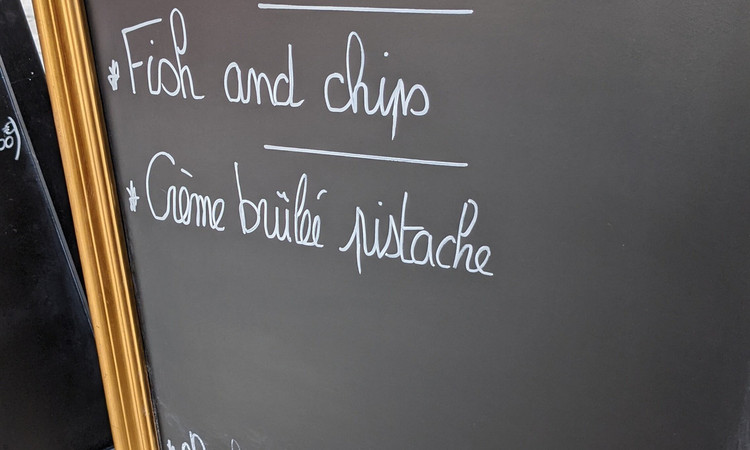 * Fish and chips
* Crème brûlée pistache